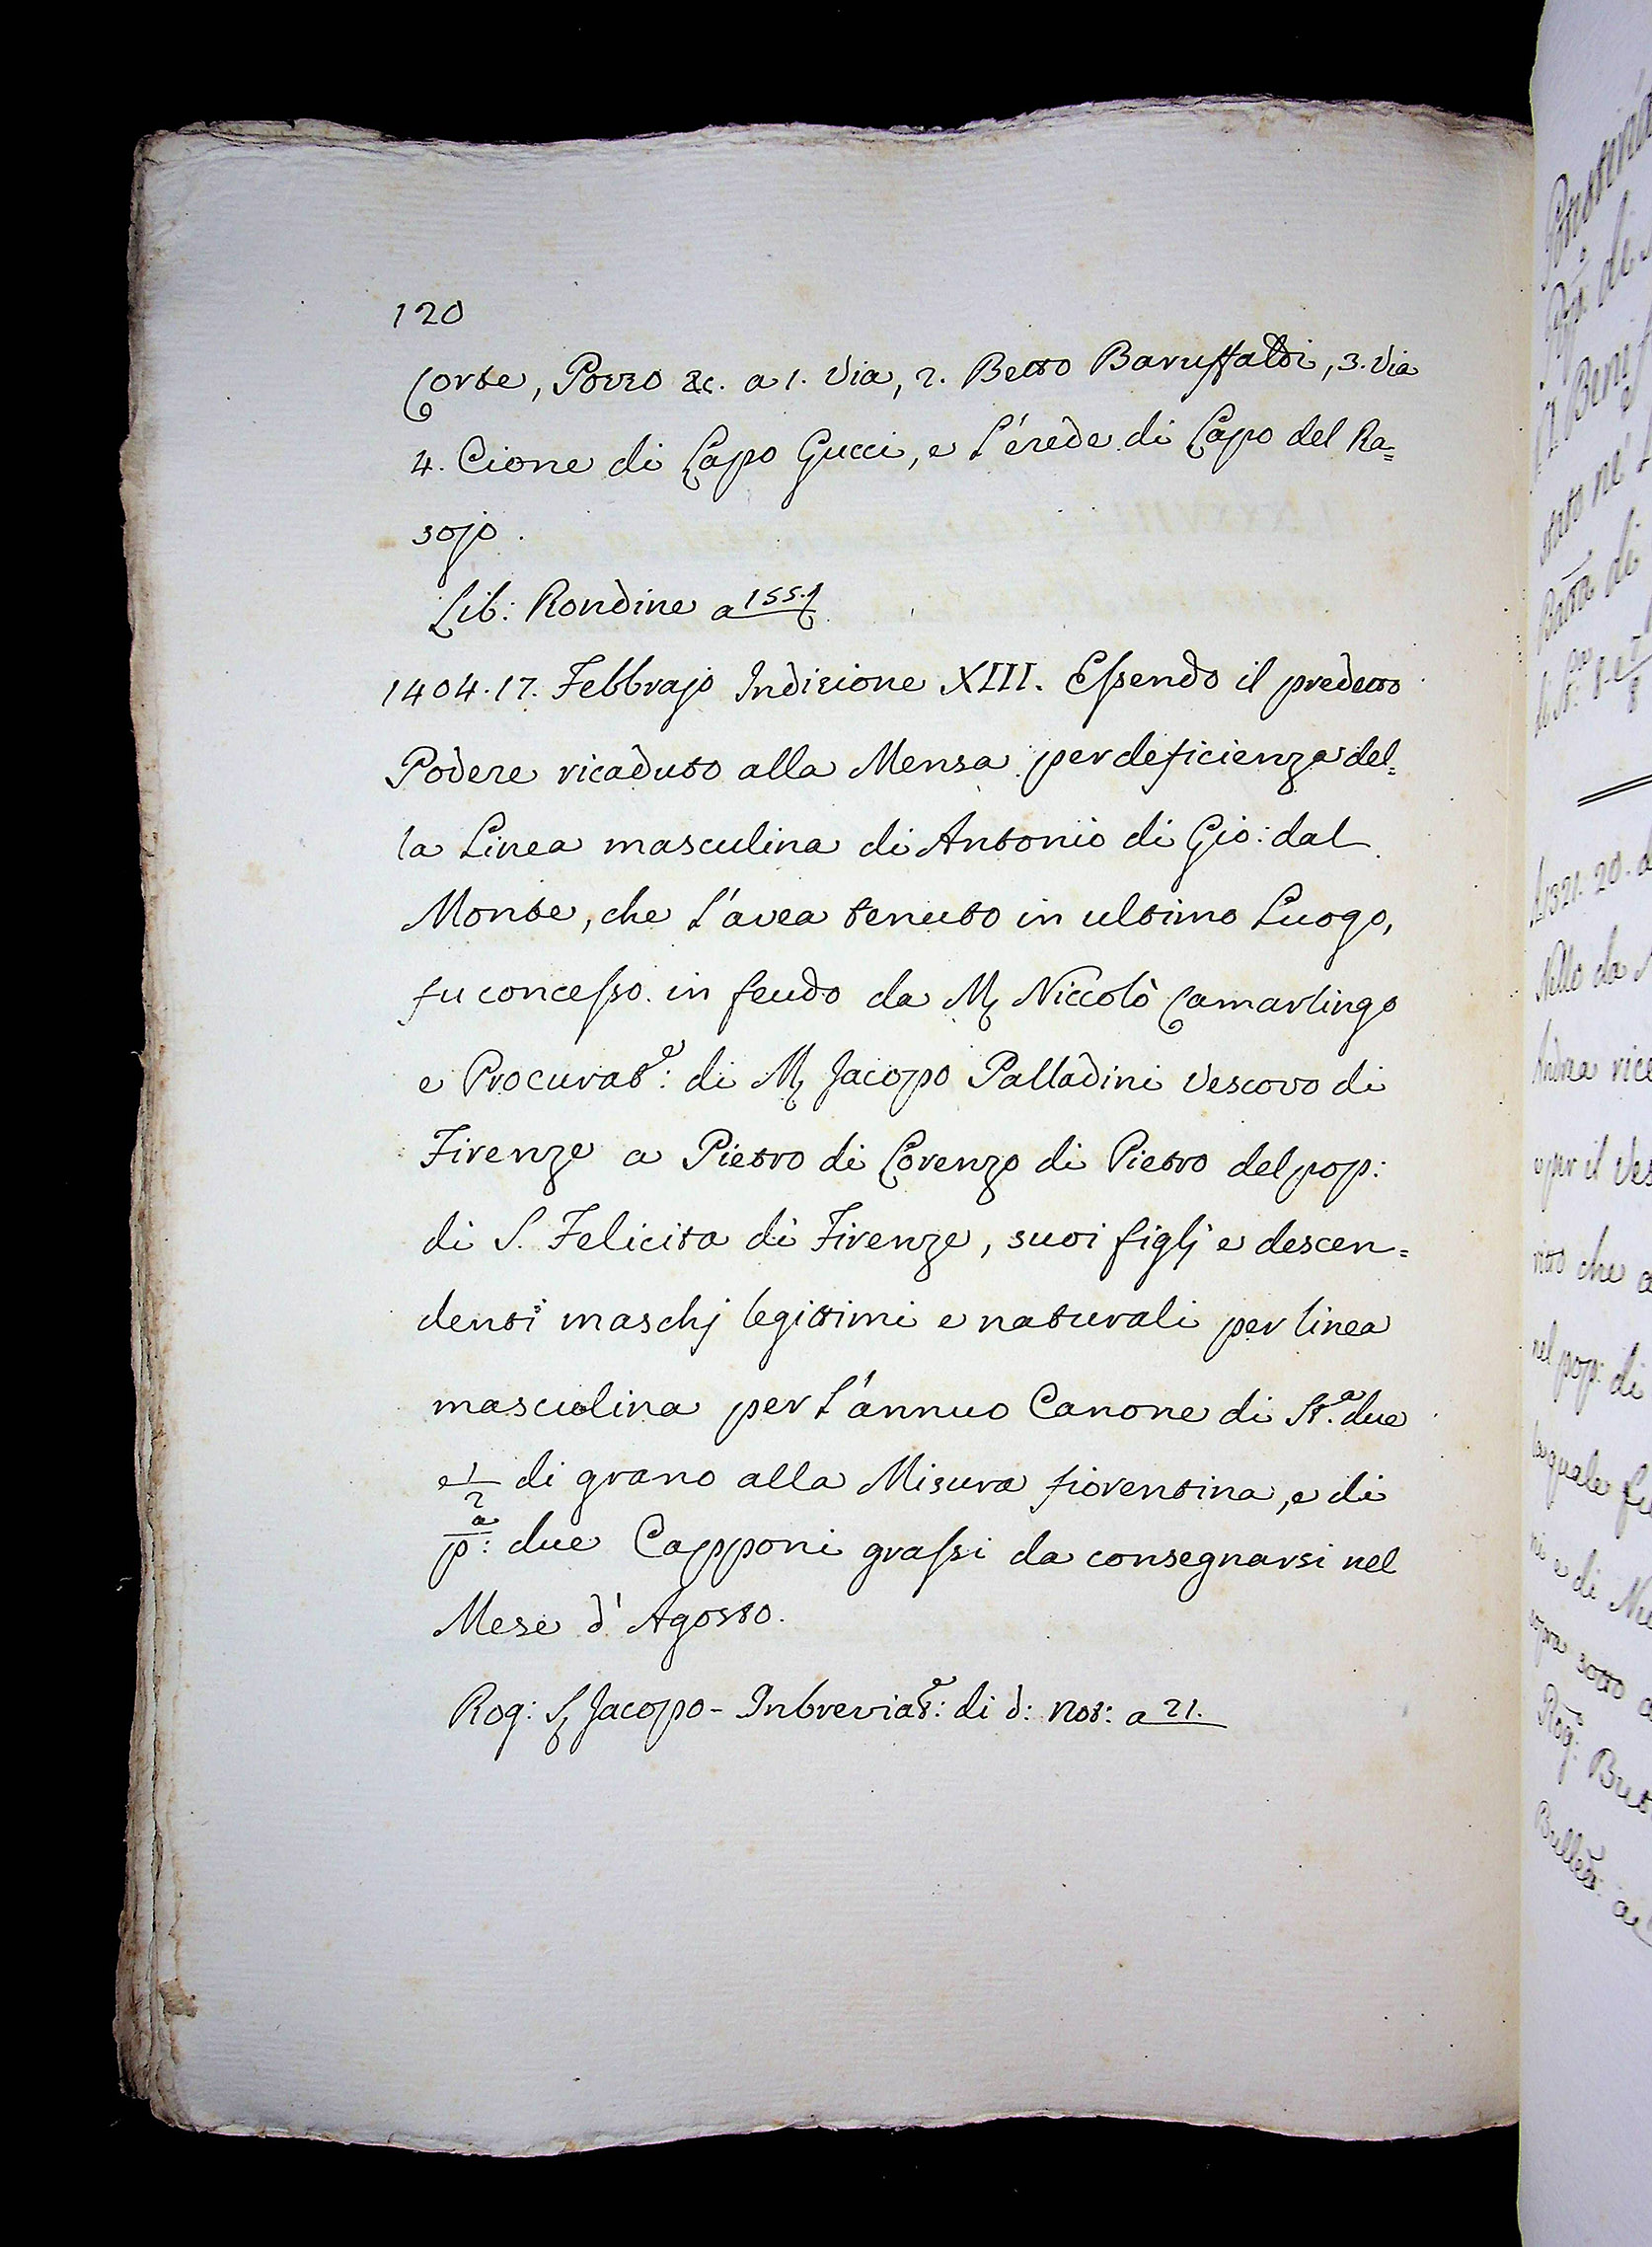 120
Corte, Pozzo &c. a 1. Via, 2. Betto Baruffaldi, 3. Via
4. Cione di Lapo Gucci, e l'erede di Lapo del Ra=
sojo.
Lib: Rondine a 155.
1404. 17. Febbrajo Indizione XIII. Essendo il predetto
Podere ricaduto alla Mensa per deficienza del=
la Linea masculina di Antonio di Gio: dal
Monte, che l'avea tenuto in ultimo Luogo,
fu concesso in feudo da M Niccolò Camarlingo
e Procurat.e: di M Jacopo Palladini Vescovo di
Firenze a Pietro di Lorenzo di Pietro del pop:
di S. Felicita di Firenze, suoi figlj e descen=
denti maschj legittimi e naturali per linea
masculina per l'annuo Canone di St.a due
e 1/2 di grano alla Misura fiorentina, e di
p:a due Capponi grassi da consegnarsi nel
Mese d'Agosto.
Rog: S Jacopo - Inbreviat.e: di d: Not: a 21.
1321. 20.
Nello da
Andrea
e per il Ves
che
nel pop: di
quale fu
ni e di
sopra sotto
Rog: